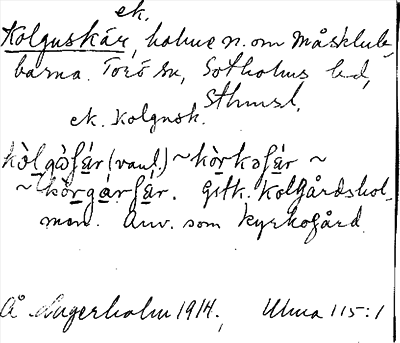 ek.
Kolguskär, holme n. om Måsklub-
barna. Torö sn, Sotholms hd,
Sthmsl.
ek. Kolgusk.
(vanl.) ~ ~
~ . Gstk. Kolgårdshol-
men. Anv. som kyrkogård
Å Lagerholm 1914, Ulma 115:1